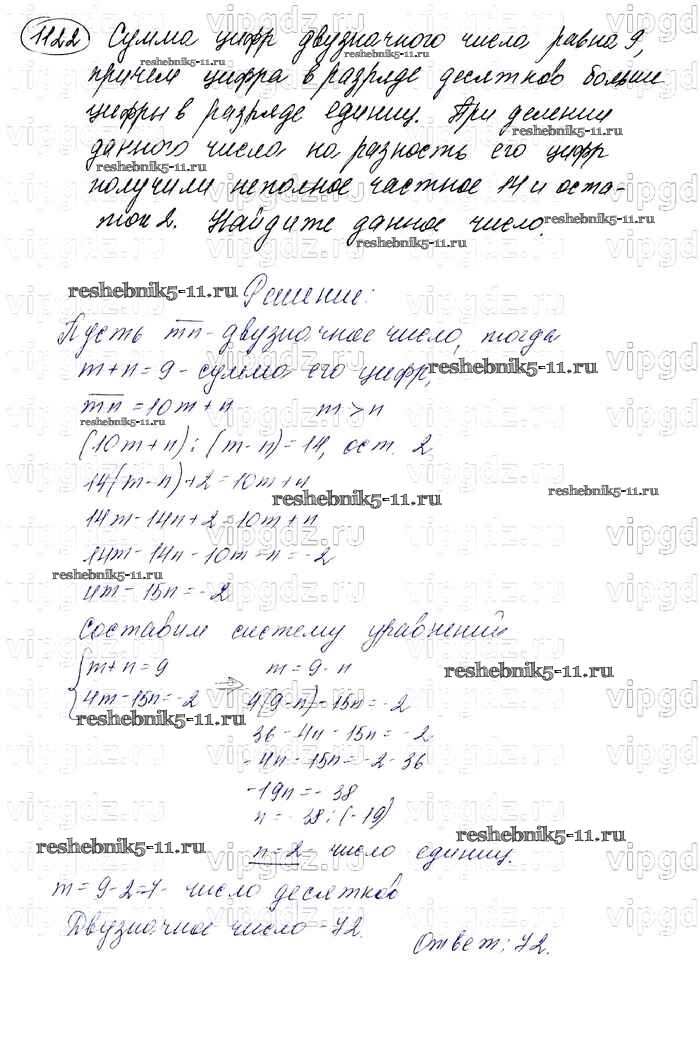 1122 Сумма цифр двузначного числа равна 9,
причем цифра в разряде десятков больше
цифры в разряде единиц. При делении
данного числа на разность его цифр
получили неполное частное 14 и оста-
ток 2. Найдите данное число.
reshebnik5-11.ru Решение:
Пусть m̅n̅ - двузначное число, тогда
m+n=9 - сумма его цифр,
m̅n̅ = 10m+n m>n
(10m+n):(m-n)=14, ост. 2
14(m-n)+2=10m+n
14m-14n+2=10m+n
14m-14n-10m-n=-2
4m-15n=-2
Составим систему уравнений
{m+n=9 m=9-n
{4m-15n=-2 => 4(9-n)-15n=-2
36-4n-15n=-2
-4n-15n=-2-36
-19n=-38
n=-38:(-19)
n=2- число единиц.
m=9-2=7- число десятков
Двузначное число -72.
Ответ: 72.